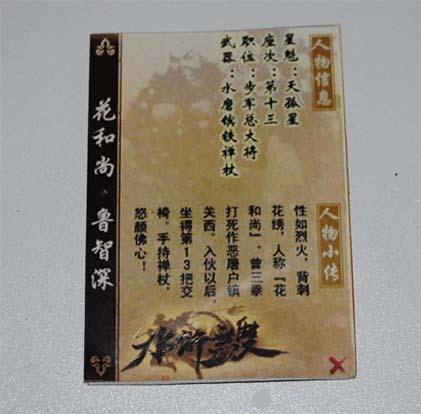 人物信息
星魁：天孤星
座次：第十三
职位：步军总大将
武器：水磨镔铁禅杖
人物小传
性如烈火，背刺
花绣，人称『花
和尚』。曾三拳
打死作恶屠户镇
关西。入伙以后，
坐得第13把交
椅。手持禅杖，
怒颜佛心！
水浒无雙
花和尚·鲁智深